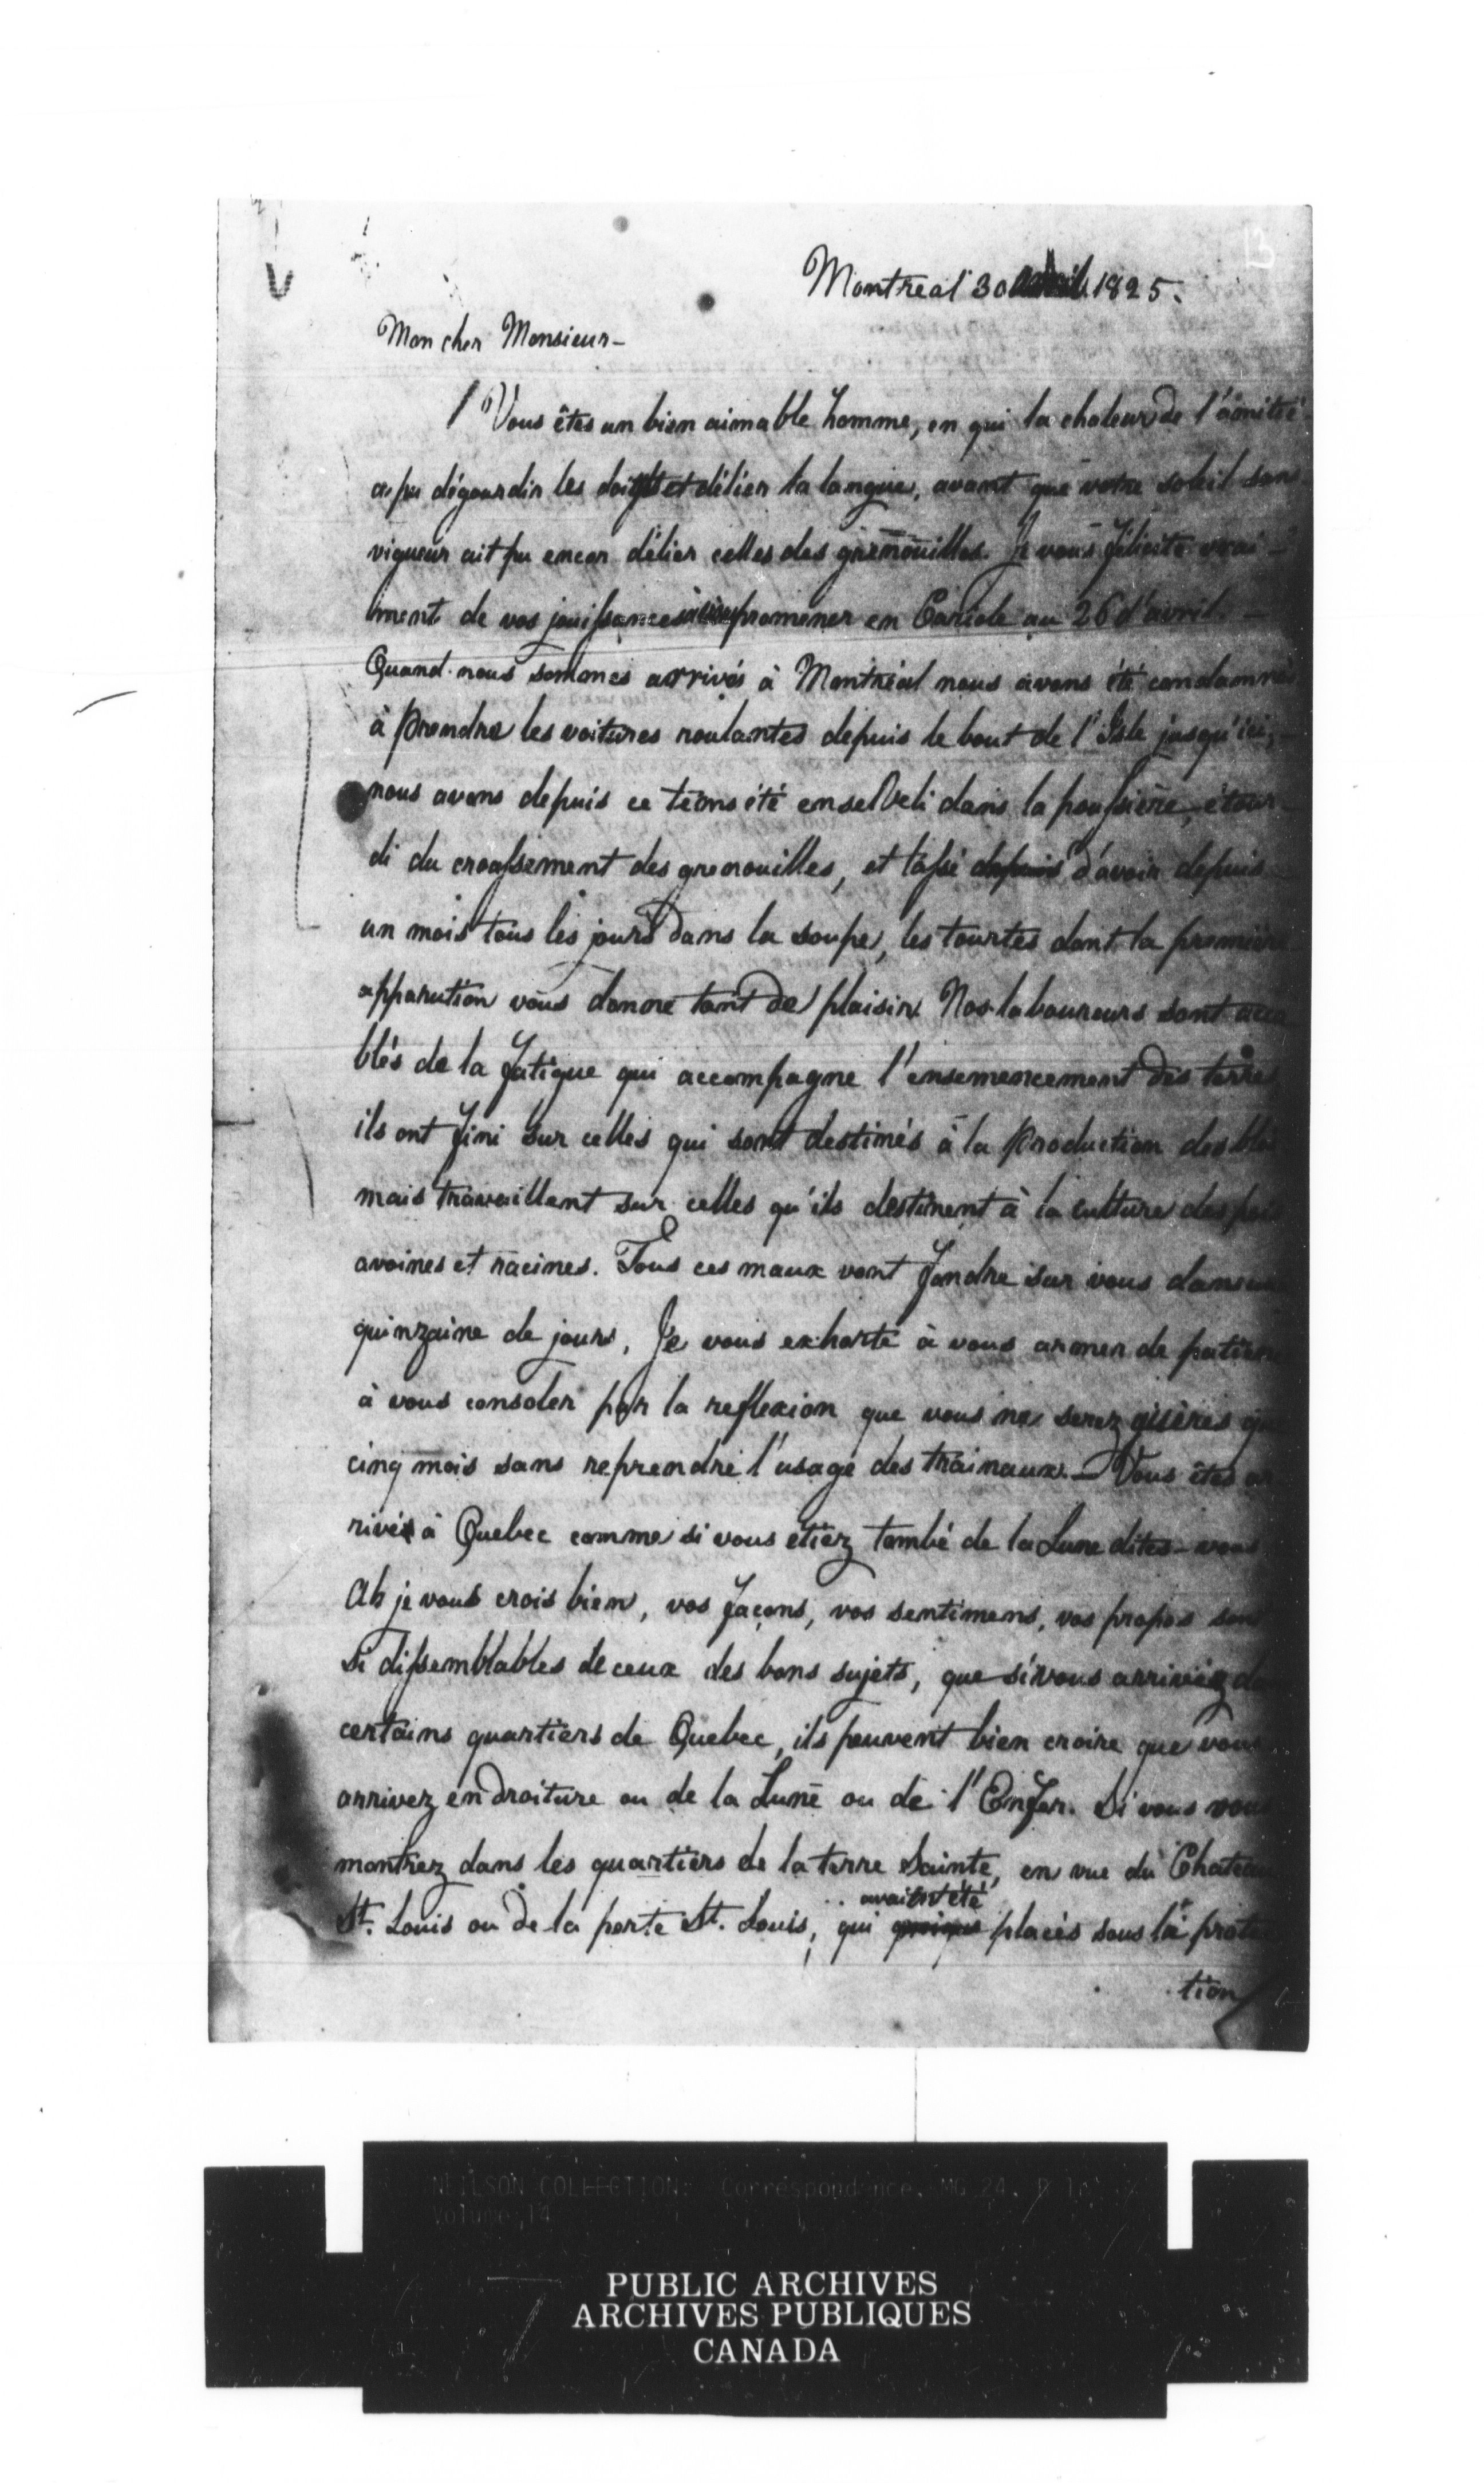 13
Montreal 30 avril 1825.
Mon cher Monsieur –
Vous êtes un bien aimable homme, en qui la chaleur de l'amitié
a pu dégourdir les doigts et délier la langue, avant que votre soleil sans
vigueur ait pu encor délier celles des grenouilles. Je vous félicite vrai-
ment de vos jouissances à vous promener en Cariole au 26 d'avril. –
Quand nous sommes arrivés à Montréal nous avons été condamnés
à prendre les voitures roulantes depuis le bout de l'Isle jusqu'ici, –
nous avons depuis ce tems été enseveli dans la poussière, étour-
di du croassement des grenouilles, et lassé depuis d'avoir depuis
un mois tous les jours dans la soupe, les tourtes dont la première
apparution vous donne tant de plaisir. Nos laboureurs sont acca
blés de la fatigue qui accompagne l'ensemencement des terres
ils ont fini sur celles qui sont destinés à la production des blés
mais travaillent sur celles qu'ils destinent à la culture des pois
avoines et racines. Tous ces maux vont fondre sur vous dans une
quinzaine de jours, Je vous exhorte à vous armer de patience
à vous consoler par la reflexion que vous ne serez guères que
cinq mois sans reprendre l'usage des trainaux. – Vous êtes ar
rivés à Quebec comme si vous étiez tombé de la Lune dites-vous
Ah je vous crois bien, vos façons, vos sentimens, vos propos sont
si dissemblables de ceux des bons sujets, que si vous arriviez de
certains quartiers de Quebec, ils peuvent bien croire que vous
arrivez en droiture ou de la Lune ou de l'Enfer. Si vous vous
montrez dans les quartiers de la terre Sainte, en vue du Chateau
avaient été
St. Louis ou de la porte St. Louis, qui placés sous la protec
tion
NEILSON COLLECTION: Correspondence. MG 24, B 1
Volume 14
PUBLIC ARCHIVES
ARCHIVES PUBLIQUES
CANADA